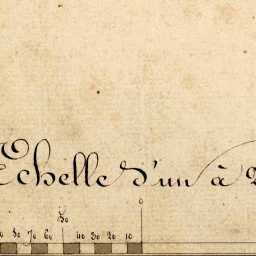 Echelle d'un à 2
50 0
80 70 60 40 30 20 10